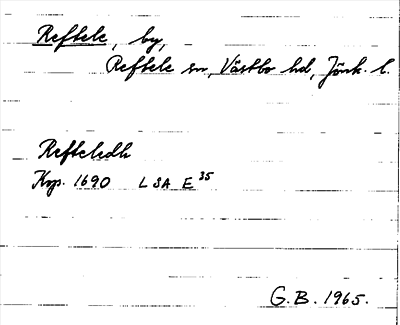 Reftele, by,
Reftele sn, Västbo hd, Jönk. l.
Refteledh
Krp. 1690 LSA E 35
G.B. 1965.